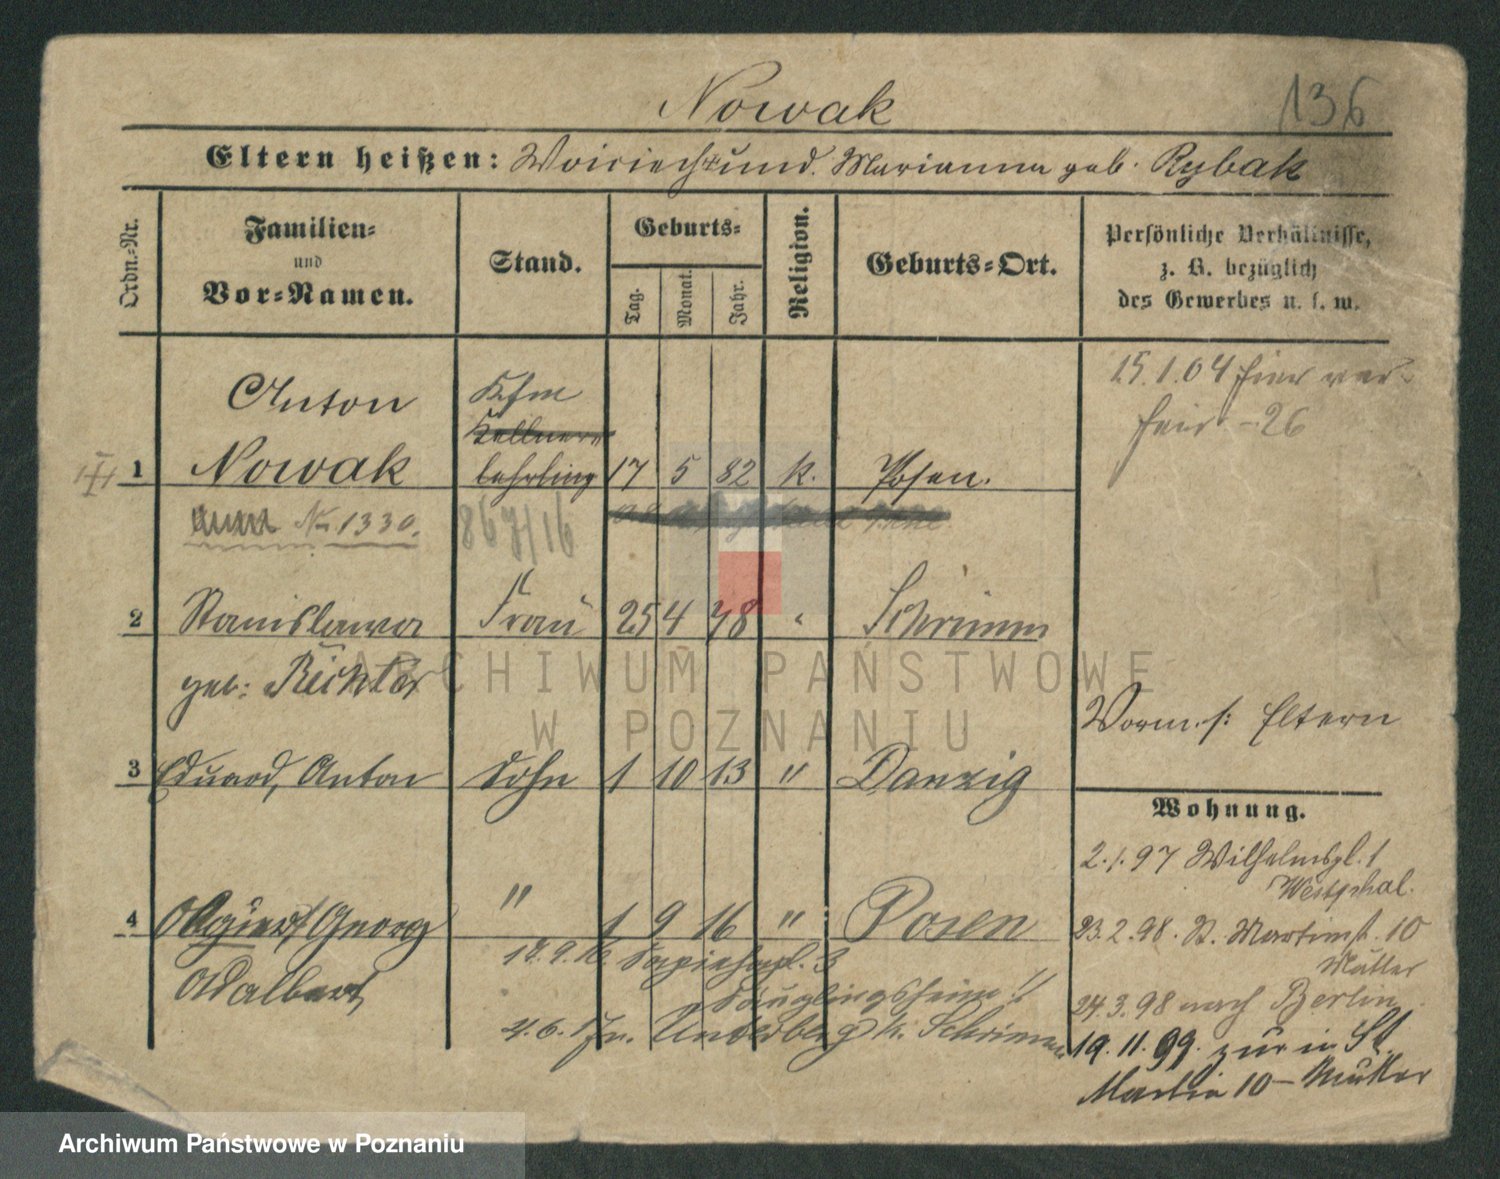 Nowak
136
Eltern heißen: Woiciech und Marianna geb. Rybak
Ordn.-Nr.
Familien- und Vor-Namen.
Stand.
Geburts-
Tag. Monat. Jahr.
Religion.
Geburts-Ort.
Persönliche Verhältnisse,
z. B. bezüglich
des Gewerbes u. s. w.
Anton Kfm
Kellner
1 Nowak lehrling 17 5 82 k. Posen.
15.1.04 hier
26
No 1330. 867/16
2 Stanislawa Frau 25 4 78 " Schrimm
geb: Richter
Worm. s: Eltern
3 Eduard, Anton Sohn 1 10 13 " Danzig
Wohnung.
2.1.97 Wilhelmspl. 1
Westphal.
4 Georg " 1 9 16 " Posen
Adalbert
18.9.16 Sapiehapl. 3
Säuglingsheim!!
4.6.17 n. Unterberg k. Schrimm
23.2.98. St. Martinst. 10
Mutter
24.3.98 nach Berlin
19.11.99. zur in St.
Martin 10 – Mutter
ARCHIWUM PAŃSTWOWE
W POZNANIU
Archiwum Państwowe w Poznaniu